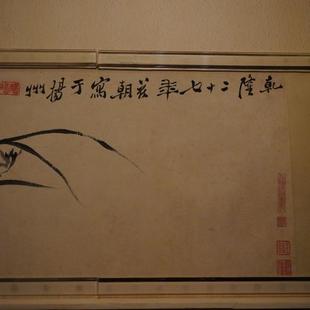 乾隆二十七年花朝寫于揚州